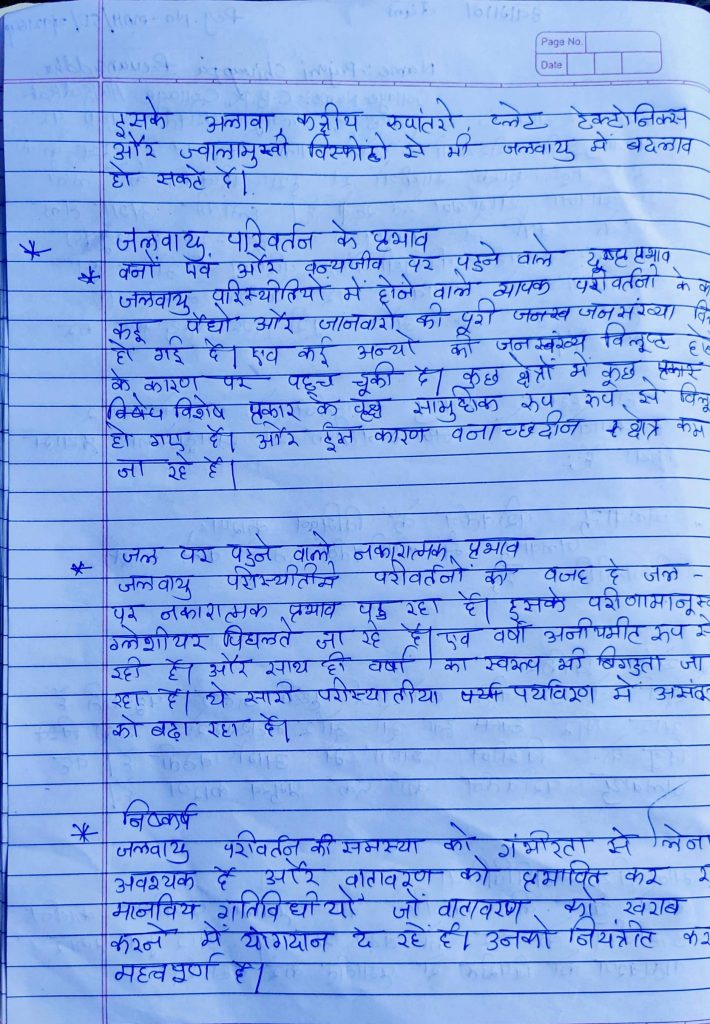 Page No.
Date
इसके अलावा, कक्षीय रुपांतरो, प्लेट टेक्टोनिक्स
और ज्वालामुखी विस्फोटो से भी जलवायु में बदलाव
हो सकते है।
* जलवायु परिवर्तन के प्रभाव
* वनों एवं और वन्यजीव पर पडने वाले प्रभाव
जलवायु परिस्थीतियों में होने वाले व्यापक परीवर्तनो के
कइ पौधो और जानवारो की पूरी जनसंख्या
हो गई है। एव कई अन्यो की जनसंख्य विलूप्ट
के कारण पर पहूच चूकी है। कुछ क्षेत्रो में कुछ
विशेष प्रकार के वृक्ष सामुहीक रुप रुप से
हो गए है। और इस कारण वनाच्छदीन क्षेत्र कम
जा रहे है।
* जल पर पडने वाले नकारात्मक प्रभाव
जलवायु परीस्थीतीमे परीवर्तनो की वजह से जल -
पर नकारात्मक प्रभाव पडु रहा है। इसके
ग्लेशीयर पिघलते जा रहे है। एव वर्षा अनीयमीट रुप से
रही है। और साथ ही वर्षा का स्वरुप भी बिगडता जा
रहा है। ये सारी परीस्थातीया पर्यावरण में
को बढ़ा रहा है।
* निष्कर्ष
जलवायु परीवर्तन की समस्या को गंभीरता से लेना
अवश्यक है और वातावरण को प्रभावित कर
मानविय गतिविधीयों जो वातावरण को खराब
करने में योगदान दे रहे है। उनको नियंत्रीत
महत्वपूर्ण है।